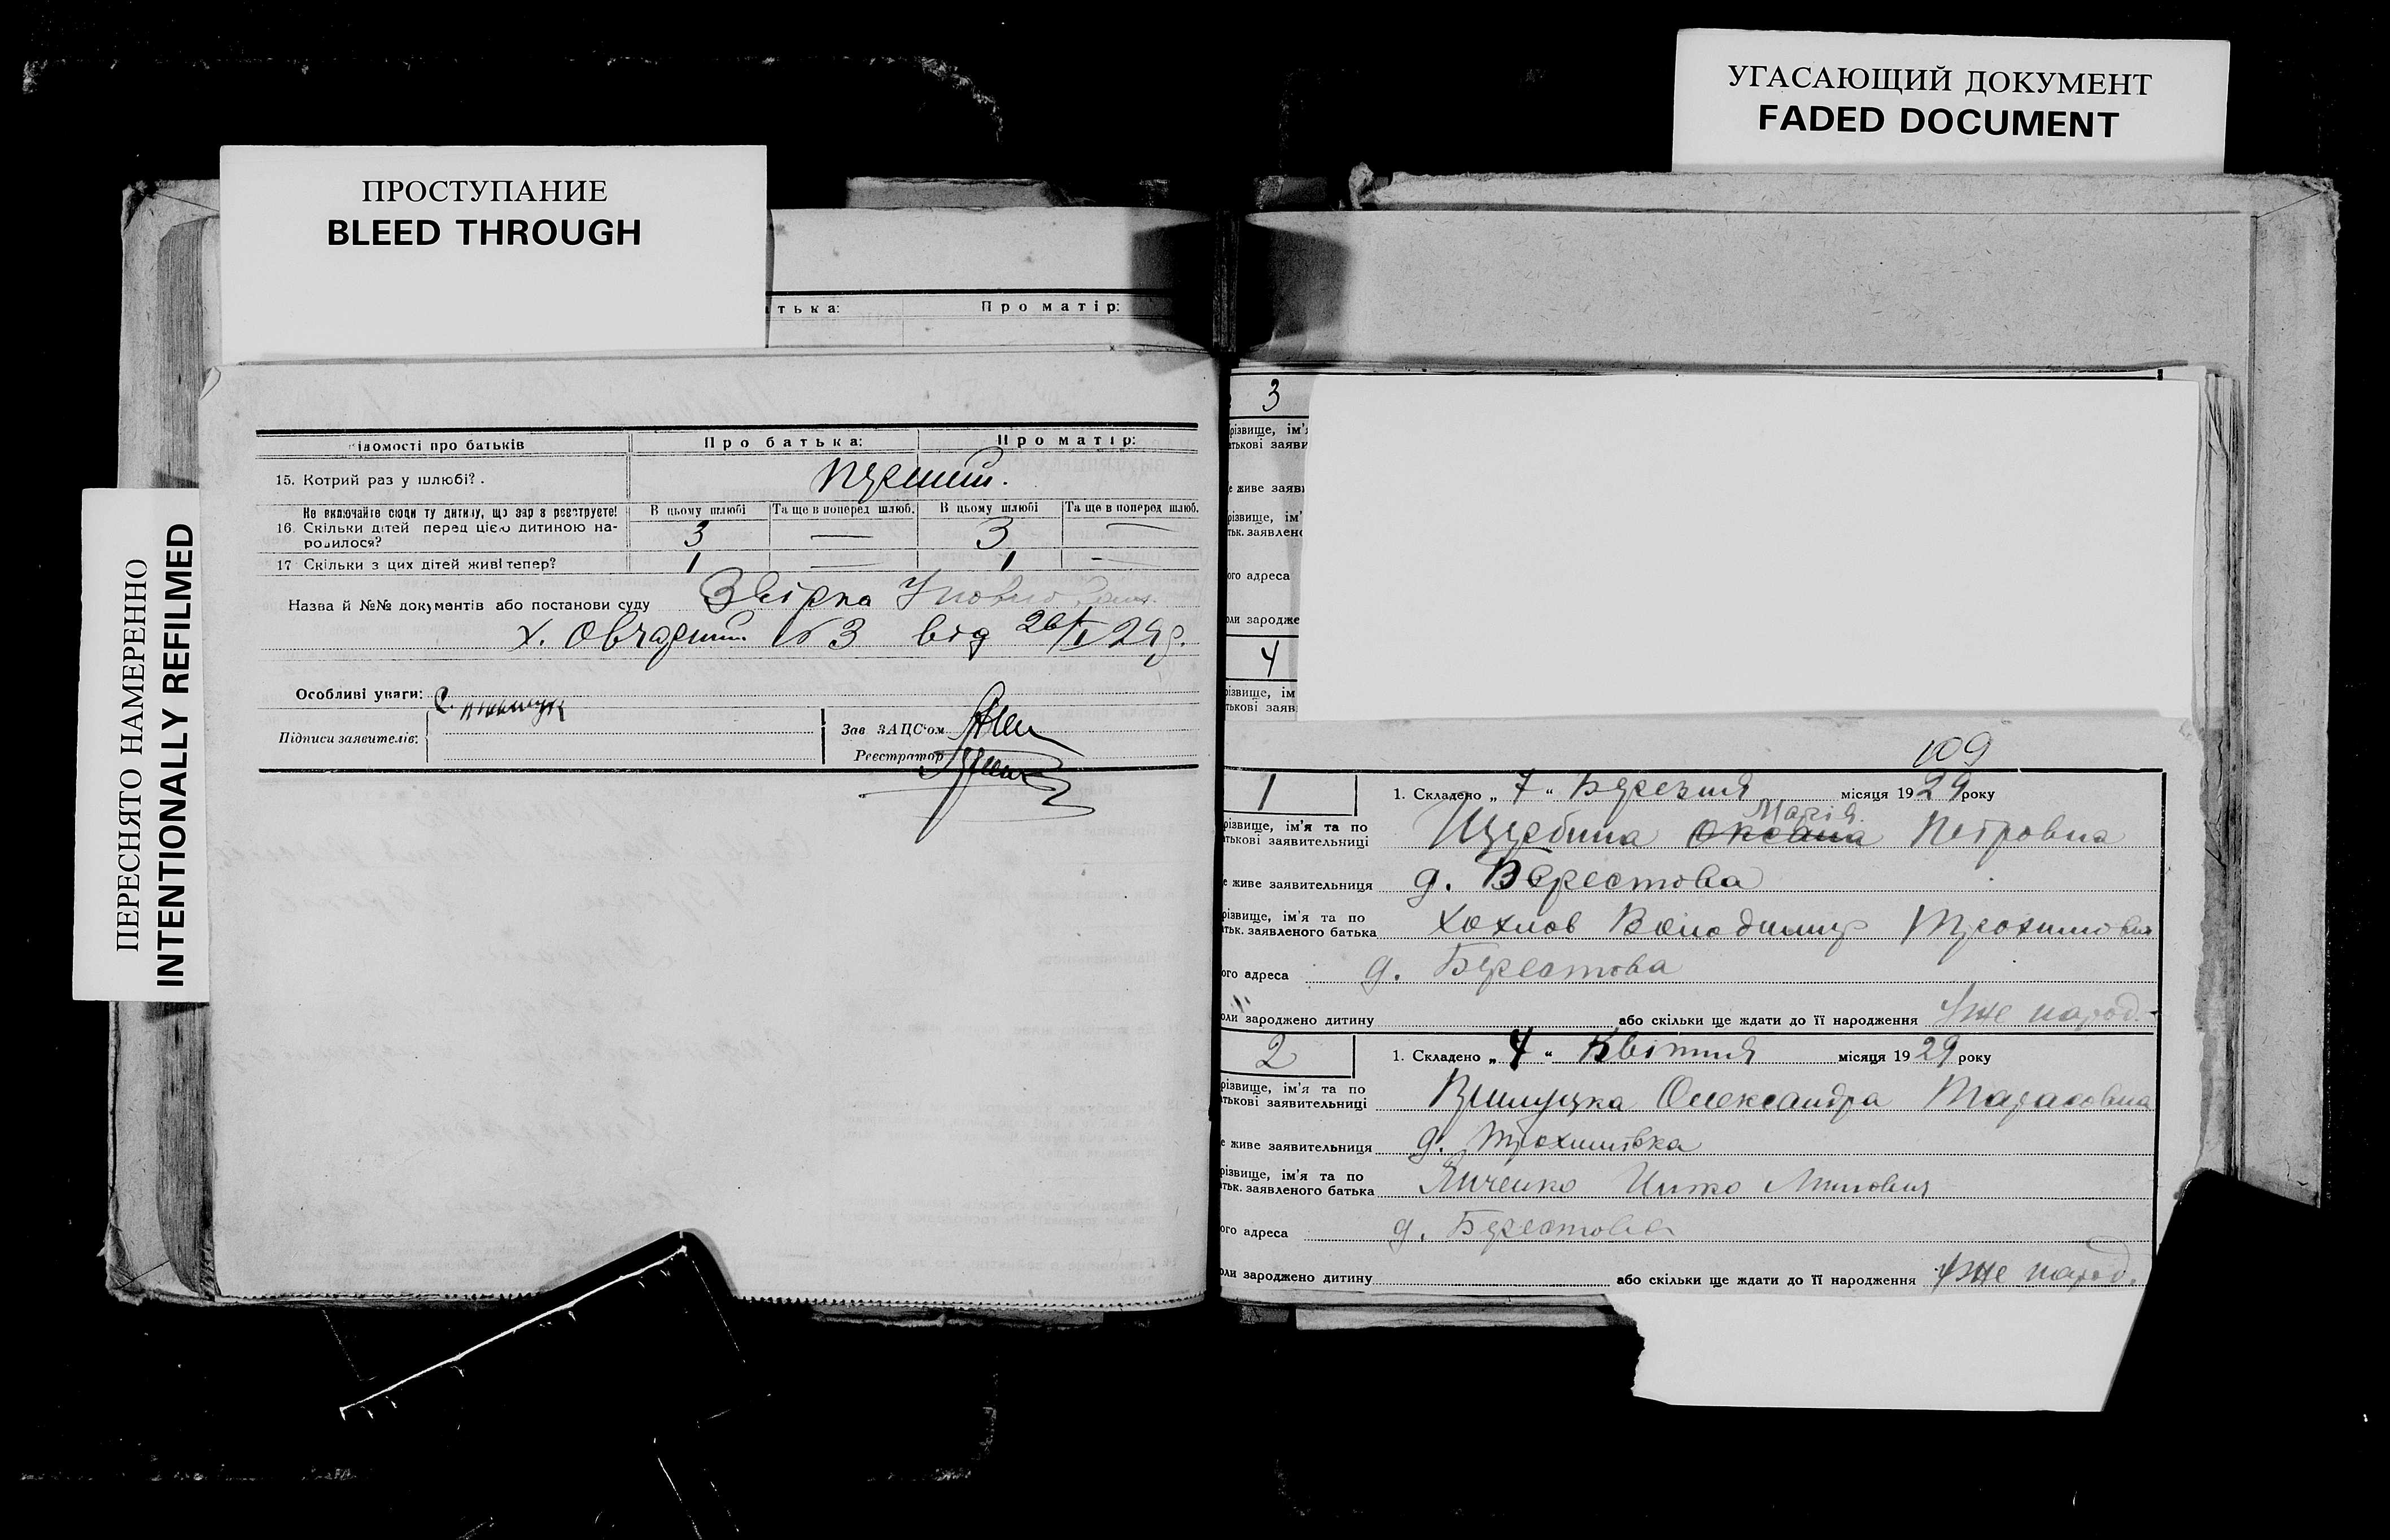 УГАСАЮЩИЙ ДОКУМЕНТ
FADED DOCUMENT
ПРОСТУПАНИЕ
BLEED THROUGH
ПЕРЕСНЯТО НАМЕРЕННО
INTENTIONALLY REFILMED
тька: Про матір:
ідомості про батьків Про батька: Про матір:
15. Котрий раз у шлюбі? . перший.
Не включайте сюди ту дитину, що зараз реєструєте! В цьому шлюбі Та ще в поперед шлюб. В цьому шлюбі Та ще в поперед шлюб.
16. Скільки дітей перед цією дитиною на-
родилося? 3 — 3 —
17 Скільки з цих дітей живі тепер? 1 — 1 -
Назва й №№ документів або постанови суду Звірка
х. № 3 від 26/I 29р.
Особливі уваги:
Підписи заявителів:
Зав ЗАЦС'ом
Реєстратор
3
різвище, ім'я
атькові заяви
е живе заяви
різвище, ім'
тьк. заявлено
ого адреса
оли зародже
4
різвище, ім
тькові заяв
109
1 1. Складено „ 7 " Березня місяця 1929 року
Марія
різвище, ім'я та по
атькові заявительниці Щербина Оксана Петровна
е живе заявительниця д. Берестова
різвище, ім'я та по
атьк. заявленого батька Хохлов Володимир Трохимович
ого адреса д. Берестова
оли зароджено дитину або скільки ще ждати до її народження Уже народ.
2 1. Складено „ 4 " Квітня місяця 1929 року
різвище, ім'я та по
атькові заявительниці Олександра Тарасовна
е живе заявительниця д. Трохимівка
різвище, ім'я та по
тьк. заявленого батька
ого адреса д. Берестова
оли зароджено дитину або скільки ще ждати до її народження Уже народ.